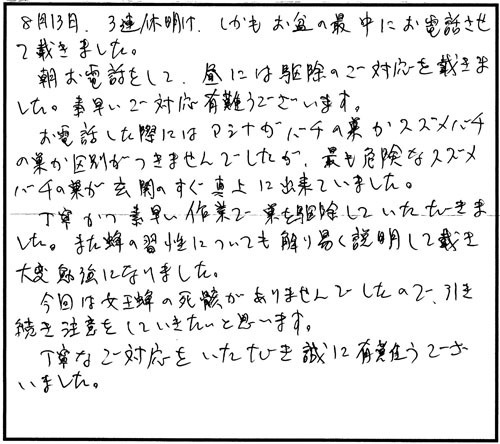 8月13日、3連休明け、しかもお盆の最中にお電話させ
て戴きました。
朝お電話をして、昼には駆除のご対応を戴きま
した。素早いご対応有難うございます。
お電話した際にはアシナガバチの巣かスズメバチ
の巣か区別がつきませんでしたが、最も危険なスズメ
バチの巣が玄関のすぐ真上に出来ていました。
丁寧かつ素早い作業で巣を駆除していただきま
した。また蜂の習性についても解り易く説明して戴き
大変勉強になりました。
今回は女王蜂の死骸がありませんでしたので、引き
続き注意をしていきたいと思います。
丁寧なご対応をいただき誠に有難うござ
いました。